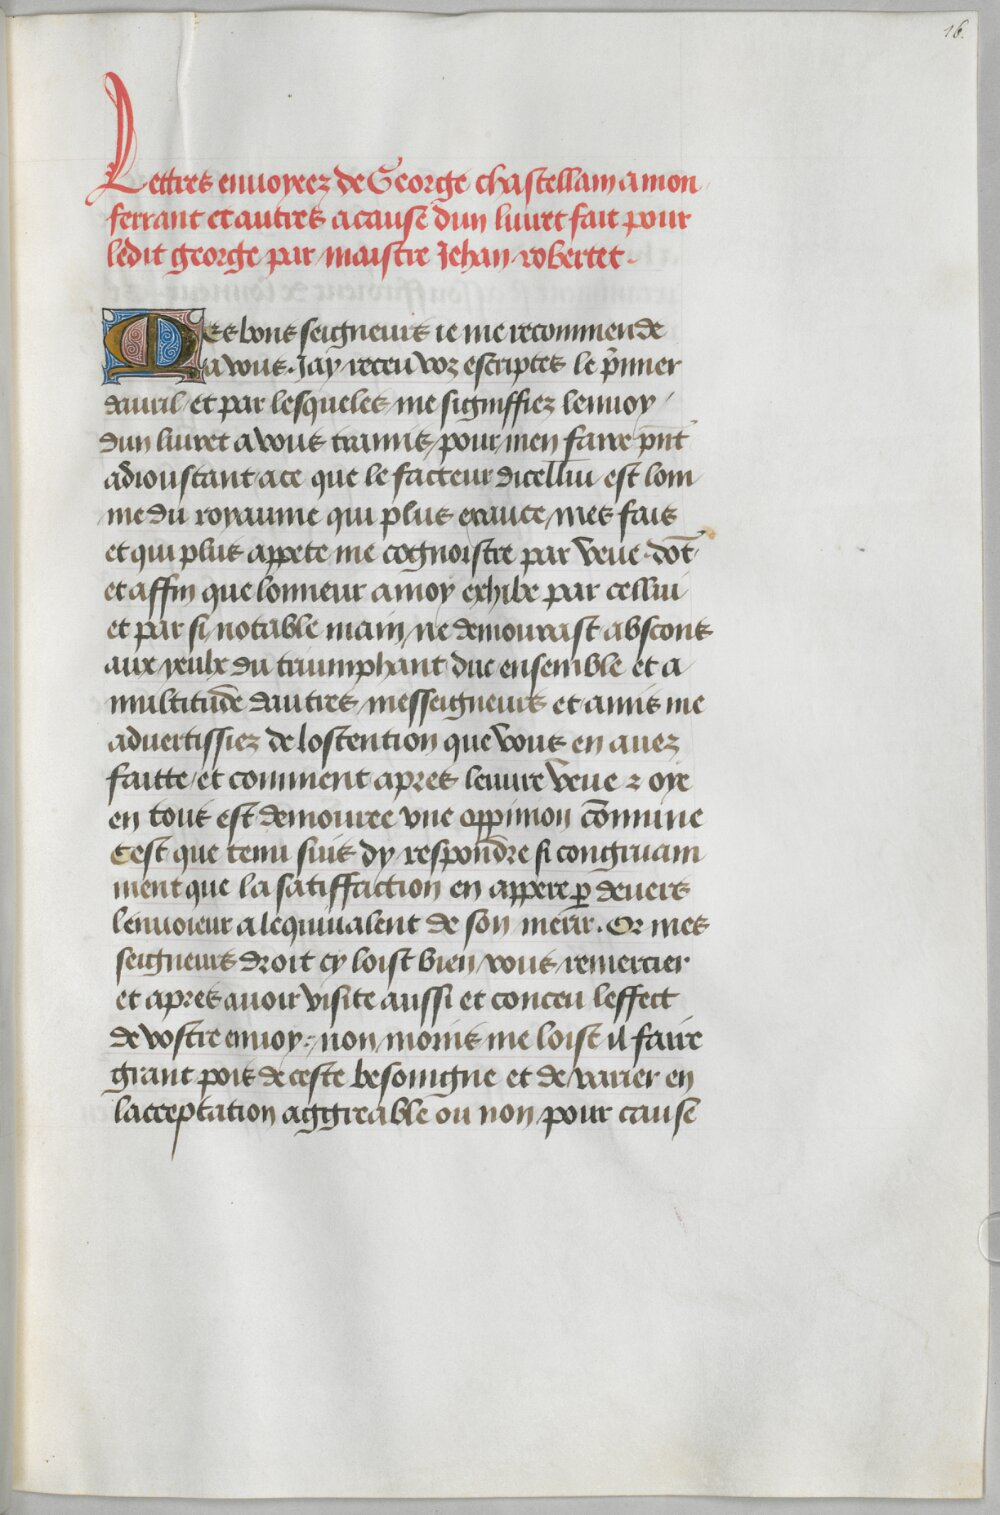 16.
Lettres enuoyeez de George chastellain a mon
ferrant et autres a cause dun liuret fait pour
ledit george par maistre Jehan robertet.
Mes bons seigneurs ie me recommende
a vous. Jay receu voz escriptes le p̄mier
dauril / et par lesqueles me signiffiez lenuoy
dun liuret a vous tramis pour men faire p̄nt
adioustant a ce que le facteur dicellui est lom
me du royaume qui plus exauce mes fais
et qui plus appete me cognoistre par veue. dōt
et affin que lonneur a moy exhibe par cellui
et par si notable main ne demourast abscons
aux yeulx du triumphant duc ensemble et a
multitude dautres messeigneurs et amis me
aduertissiez de lostention que vous en auez
faitte / et comment apres leuure veue ⁊ oye
en tous est demouree vne oppinion cōmune
Cest que tenu suis dy respondre si congruam
ment que la satiffaction en appere ꝑ deuers
lenuoieur a lequiualent de son merir. Or mes
seigneurs droit cy loist bien vous remercier
et apres auoir visite aussi et conceu leffect
de vostre enuoy: non moins me loist il faire
grant pois de ceste besoingne et de varier en
lacceptation aggreable ou non pour cause